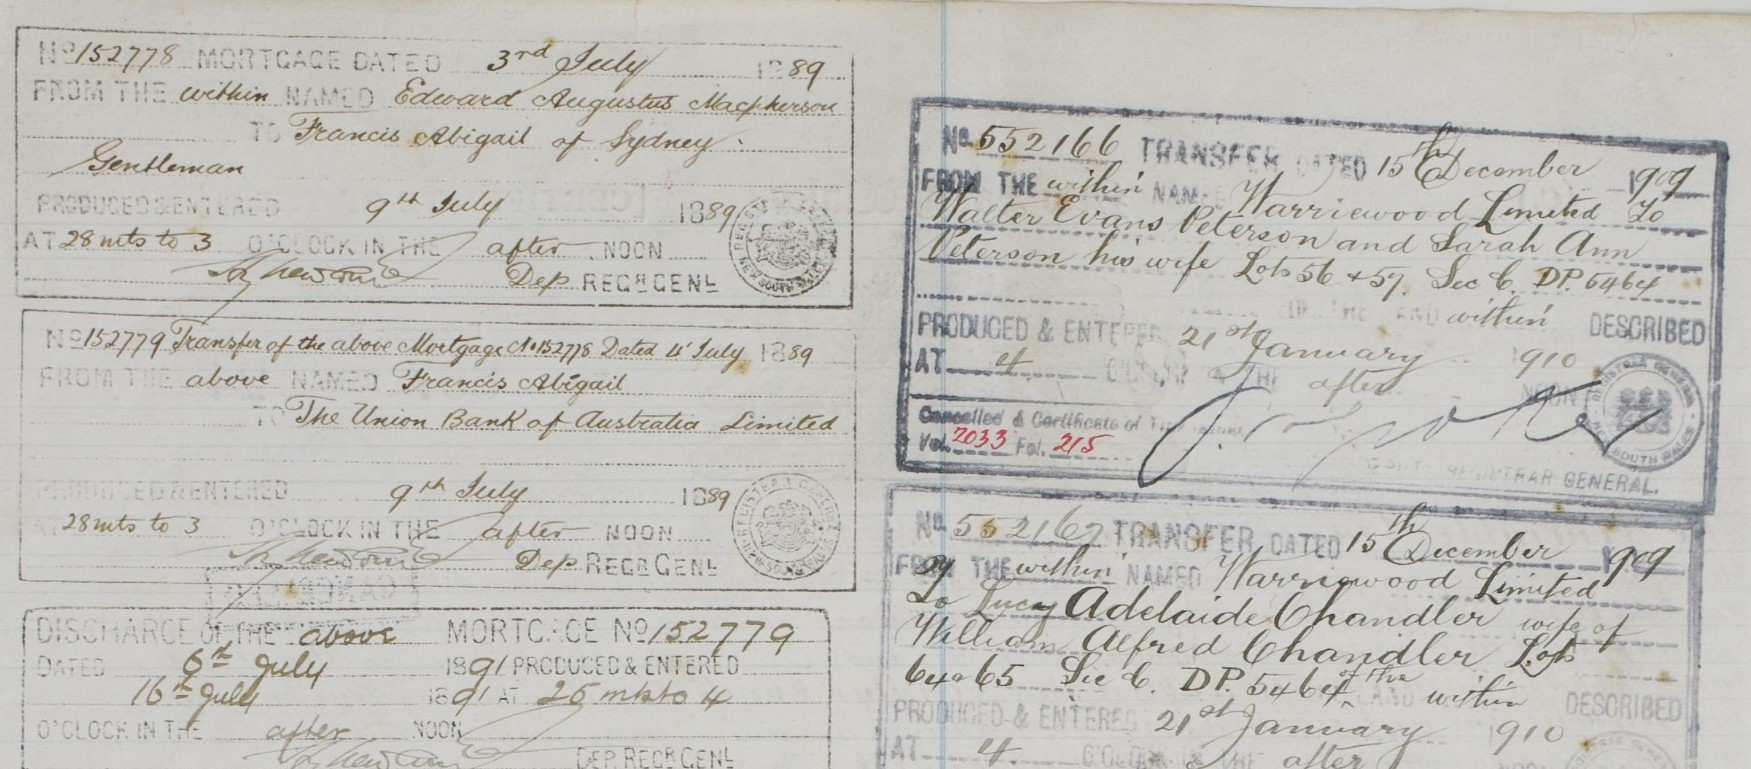 No 152778 MORTGAGE DATED 3rd July 1889
FROM THE within NAMED Edward Augustus Macpherson
TO Francis Abigail of Sydney
Gentleman
PRODUCED & ENTERED 9th July 1889
AT 28 mts to 3 O'CLOCK IN THE after NOON
Dep REGR GENL
No 152779 Transfer of the above Mortgage No 152778 Dated 4 July 1889
FROM THE above NAMED Francis Abigail
TO The Union Bank of Australia Limited
PRODUCED & ENTERED 9th July 1889
AT 28 mts to 3 O'CLOCK IN THE after NOON
Dep REGR GENL
DISCHARGE OF THE above MORTGAGE No 152779
DATED 6th July 1891 PRODUCED & ENTERED
16th July 1891 AT 25 mts to 4
O'CLOCK IN THE after NOON
DEP. REGR GENL
No. 552166 TRANSFER DATED 15th December 1909
FROM THE within NAMED Warriewood Limited to
Walter Evans Peterson and Sarah Ann
Peterson his wife Lots 56 & 57. Sec C. DP. 5464
within DESCRIBED
PRODUCED & ENTERED 21st January 1910
AT 4 O'CLOCK IN THE after NOON
Cancelled & Certificate of Title
Vol. 2033 Fol. 215
REGISTRAR GENERAL.
No. 552167 TRANSFER DATED 15th December 1909
FROM THE within NAMED Warriewood Limited
to Lucy Adelaide Chandler wife of
William Alfred Chandler Lots
64 & 65 Sec C. DP. 5464 of the LAND within DESCRIBED
PRODUCED & ENTERED 21st January 1910
AT 4 O'CLOCK IN THE after NOON